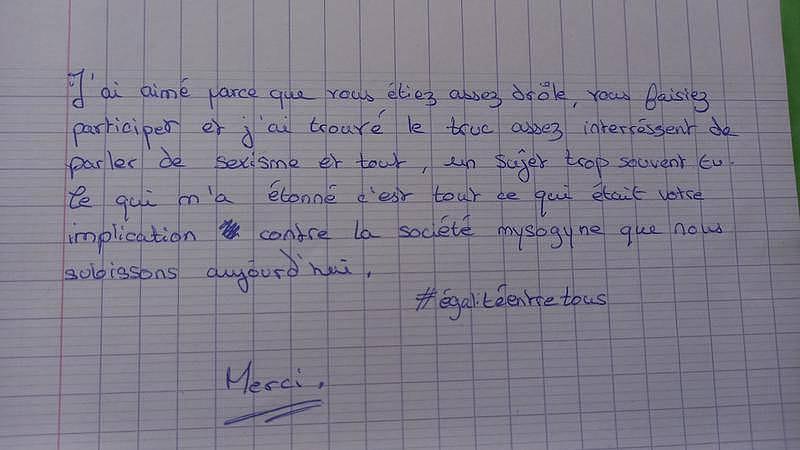 J'ai aimé parce que vous étiez assez drôle, vous faisiez
participer et j'ai trouvé le truc assez interréssent de
parler de sexisme et tout, un sujet trop souvent tu.
Ce qui m'a étonné c'est tout ce qui était votre
implication contre la société mysogyne que nous
subissons aujourd'hui.
#égalitéentretous
Merci.